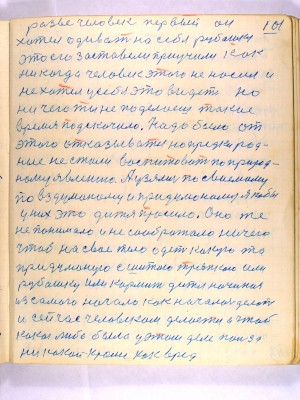 разве человек первый он 101
хотел одиват на себя рубашку
это его заставели приучили как
никогда человек этого не носил и
не хотел у себя это видеть но
ничего ты не поделиш такие
время подскочило. Надо было от
этого отказыватся но предки род-
ные не стали воспитоват по природ-
ному явлению. А узяли по своему
по вздуманому и придуманому якобы
у них это дитя просило. Оно же
не понимало и не соображало ничего
чтоб на свое тело одет какую то
придуманую с шитого тряпкою или
рубашку или кормит дитя начиная
из самого начало как начало делат
и сейчас человеком делается а чтоб
какая либо была у этом деле польза
никакой кроми как вред